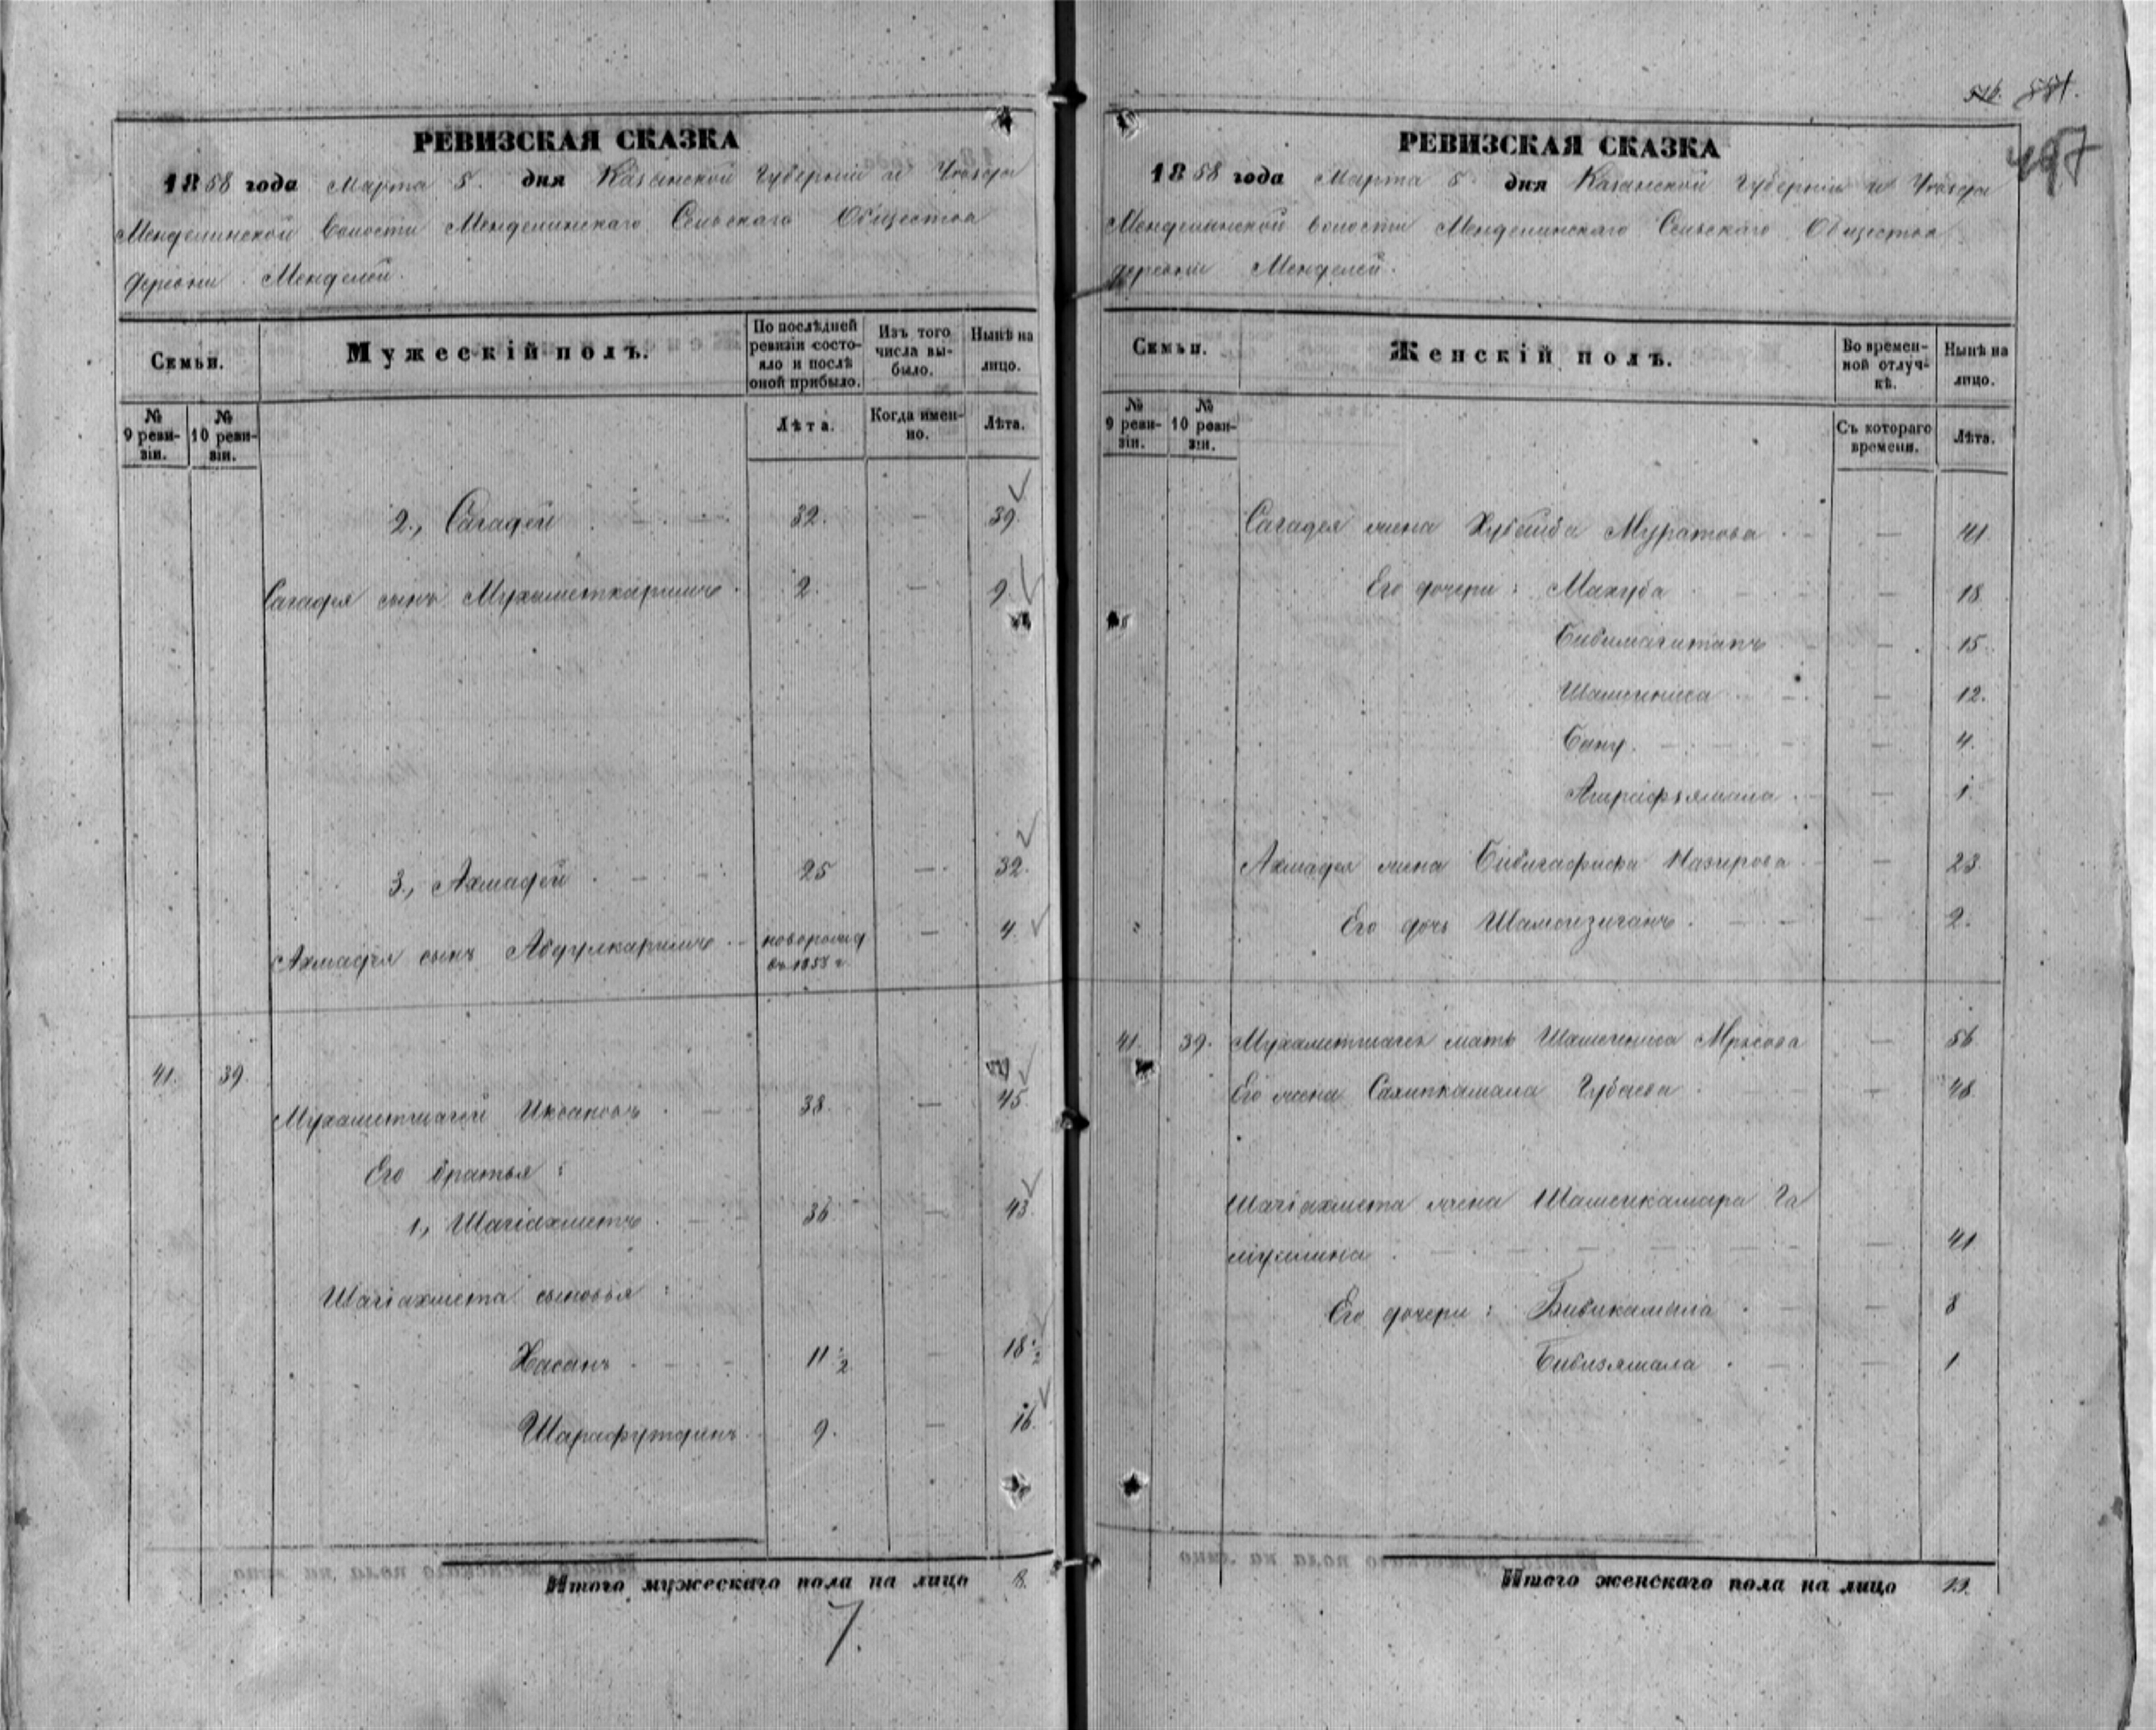 516. 581.
497
РЕВИЗСКАЯ СКАЗКА
1858 года Марта 5. дня Казанской Губерніи и Уѣзда
Менделинской волости Менделинскаго Сельскаго Общества
деревни Менделей.
Семьи.
Мужескій полъ.
По послѣдней ревизіи состояло и послѣ оной прибыло.
Изъ того числа выбыло.
Нынѣ на лицо.
№ 9 ревизіи.
№ 10 ревизіи.
Лѣта.
Когда именно.
Лѣта.
2., Сагадей 32. — 39.
Сагадея сынъ Мухаметкаримъ 2. — 9
3., Ахмадей 25 — 32.
Ахмадея сынъ Абдулкаримъ новорожд — 4.
въ 1853 г.
41. 39.
Мухаметшагей Иксановъ 38. — 45.
Его братья:
1., Шагіахметъ 36. — 43.
Шагіахмета сыновья:
Хасанъ 11 1/2 — 18 1/2
Шарафутдинъ 9. — 16.
Итого мужескаго пола на лицо 8.
7.
РЕВИЗСКАЯ СКАЗКА
1858 года Марта 5. дня Казанской Губерніи и Уѣзда
Менделинской волости Менделинскаго Сельскаго Общества
деревни Менделей.
Семьи.
Женскій полъ.
Во временной отлучкѣ.
Нынѣ на лицо.
№ 9 ревизіи.
№ 10 ревизіи.
Съ котораго времени.
Лѣта.
Сагадея жена Хубайба Муратова — 41.
Его дочери: Махуба — 18.
— 15.
Шамсиниса — 12.
Бану. — 4.
— 1.
Ахмадея жена Бибигафифа Назирова — 23.
Его дочь — 2.
41. 39. Мухаметшагея мать Шамсиниса — 56
Его жена Сахипкамала Губаева — 48.
Шагіахмета жена Шамсикамара Га
— 41
Его дочери: Бибикамала — 8
Бибизямала — 1
Итого женскаго пола на лицо